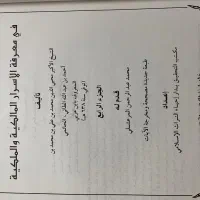 في معرفة الأسرار المالكية والملكية
تأليف
الشيخ الأكبر محيي الدين محمد بن علي بن محمد بن
أحمد بن عبد الله الطائي، الحاتمي
المعروف بابن عربي
المتوفى سنة ٦٣٨ هـ
الجزء الرابع
قدم له
محمد عبد الرحمن المرعشلي
طبعة جديدة مصححة ومخرجة الآيات
إعداد
مكتب التحقيق بدار إحياء التراث الإسلامي